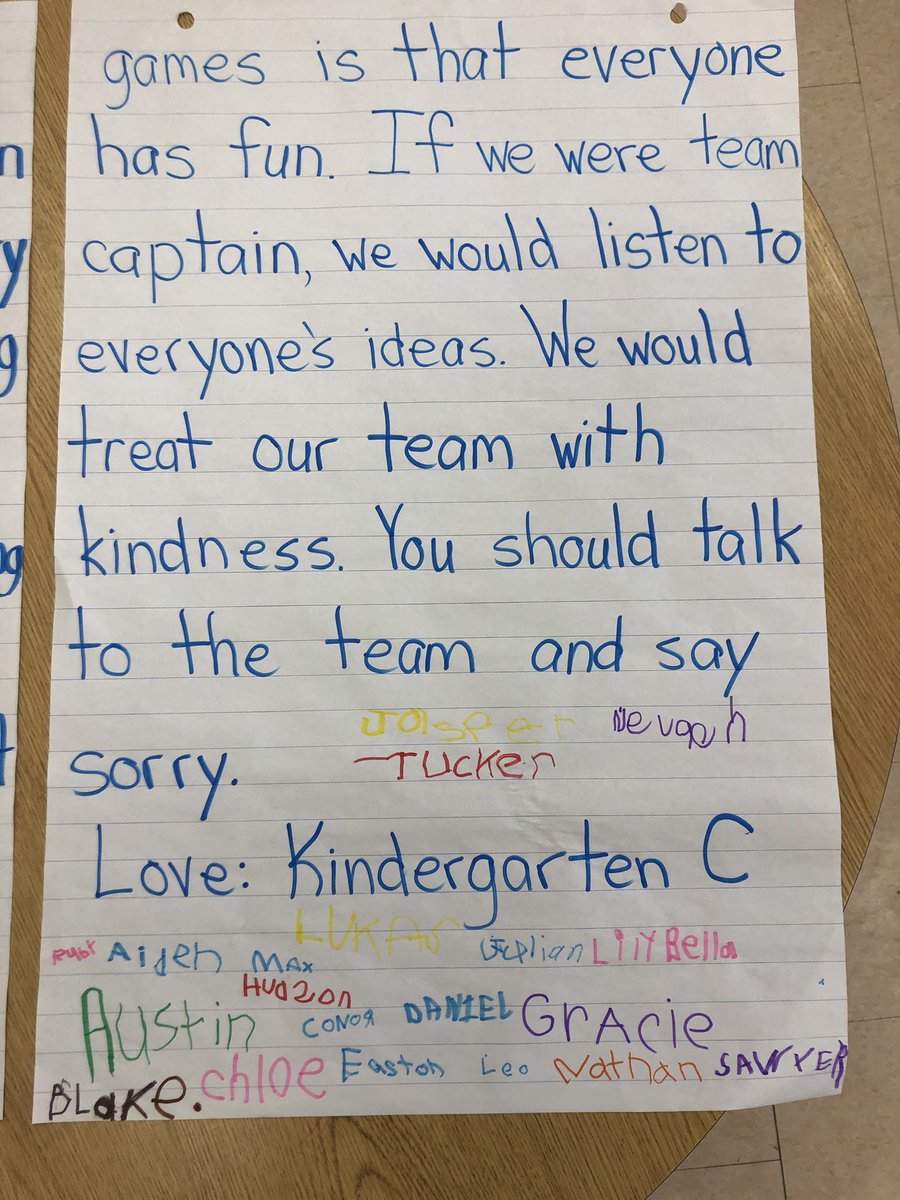 n
y
g
g
games is that everyone
has fun. If we were team
captain, we would listen to
everyone's ideas. We would
treat our team with
kindness. You should talk
to the team and say
Jasper Nevaah
sorry.
TUCKER
Love: Kindergarten C
LUKAS
RUBY Aiden MAX LillY Bella
HUDZON
AUstin CONOR DANIEL GrAcie
BLaKe. chloe Easton Leo Nathan SAWYER